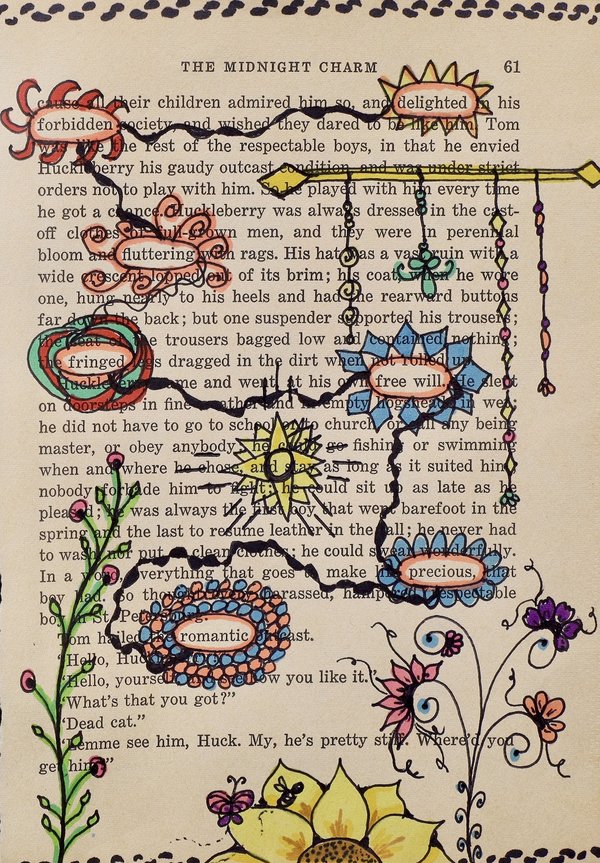 THE MIDNIGHT CHARM 61
cause all their children admired him so, and delighted in his
forbidden society, and wished they dared to be like him. Tom
was like the rest of the respectable boys, in that he envied
Huckleberry his gaudy outcast condition, and was under strict
orders not to play with him. So he played with him every time
he got a chance. Huckleberry was always dressed in the cast-
off clothes of full-grown men, and they were in perennial
bloom and fluttering with rags. His hat was a vast ruin with a
wide crescent lopped out of its brim; his coat, when he wore
one, hung nearly to his heels and had the rearward buttons
far down the back; but one suspender supported his trousers;
the seat of the trousers bagged low and contained nothing;
the fringed legs dragged in the dirt when not rolled up.
Huckleberry came and went, at his own free will. He slept
on doorsteps in fine weather and in empty hogsheads in wet;
he did not have to go to school or to church, or call any being
master, or obey anybody; he could go fishing or swimming
when and where he chose, and stay as long as it suited him;
nobody forbade him to fight; he could sit up as late as he
pleased; he was always the first boy that went barefoot in the
spring and the last to resume leather in the fall; he never had
to wash, nor put on clean clothes; he could swear wonderfully.
In a word, everything that goes to make life precious, that
boy had. So thought every harassed, hampered, respectable
boy in St. Petersburg.
Tom hailed the romantic outcast.
"Hello,
"Hello, yourself, and see how you like it."
"What's that you got?"
"Dead cat."
"Lemme see him, Huck. My, he's pretty stiff. Where'd you
get him?"